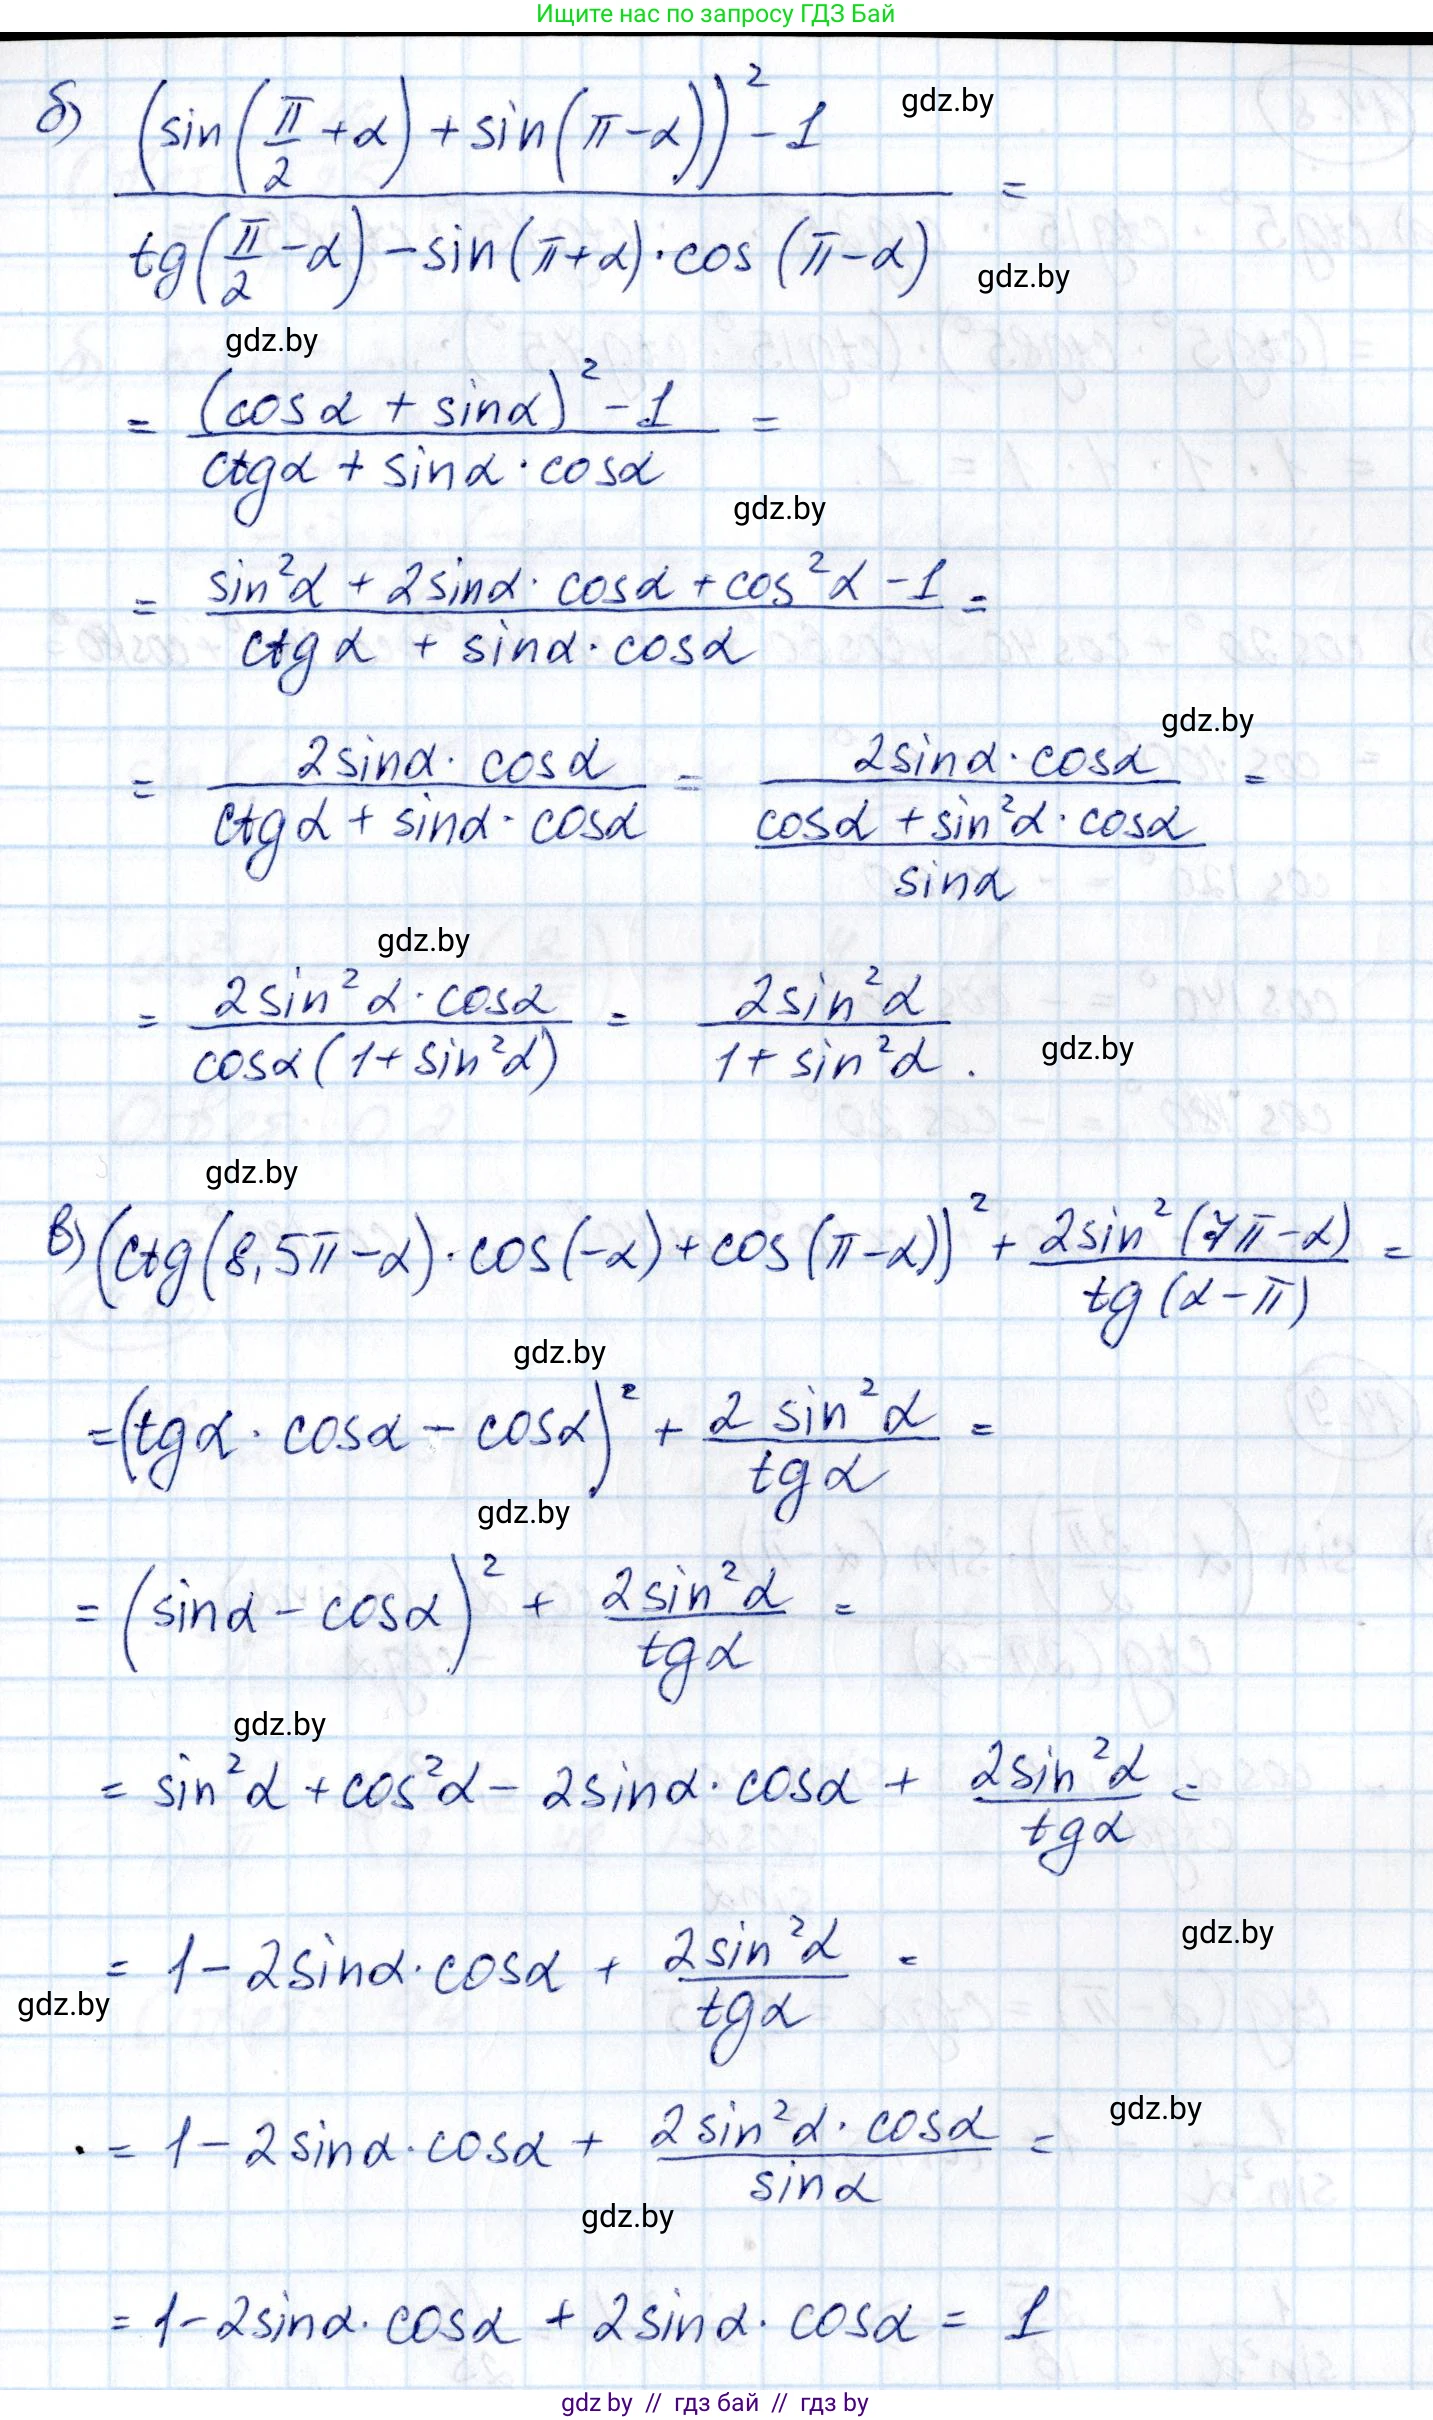 Ищите нас по запросу ГДЗ Бай
б) (sin(π/2 + α) + sin(π − α))² − 1 gdz.by
=
tg(π/2 − α) − sin(π + α) · cos (π − α) gdz.by
gdz.by
= (cos α + sin α)² − 1 =
ctg α + sin α · cos α
gdz.by
= sin²α + 2 sin α · cos α + cos²α − 1 =
ctg α + sin α · cos α
gdz.by
= 2 sin α · cos α = 2 sin α · cos α =
ctg α + sin α · cos α cos α + sin²α · cos α
sin α
gdz.by
= 2 sin²α · cos α = 2 sin²α
cos α (1 + sin²α) 1 + sin²α . gdz.by
gdz.by
в) (ctg(8,5π − α) · cos(−α) + cos(π − α))² + 2 sin²(7π − α) =
tg (α − π)
gdz.by
= (tg α · cos α − cos α)² + 2 sin²α =
tg α
gdz.by
= (sin α − cos α)² + 2 sin²α =
tg α
gdz.by
= sin²α + cos²α − 2 sin α · cos α + 2 sin²α =
tg α
gdz.by
= 1 − 2 sin α · cos α + 2 sin²α =
gdz.by tg α
gdz.by
= 1 − 2 sin α · cos α + 2 sin²α · cos α =
sin α
gdz.by
= 1 − 2 sin α · cos α + 2 sin α · cos α = 1
gdz by // гдз бай // гдз by